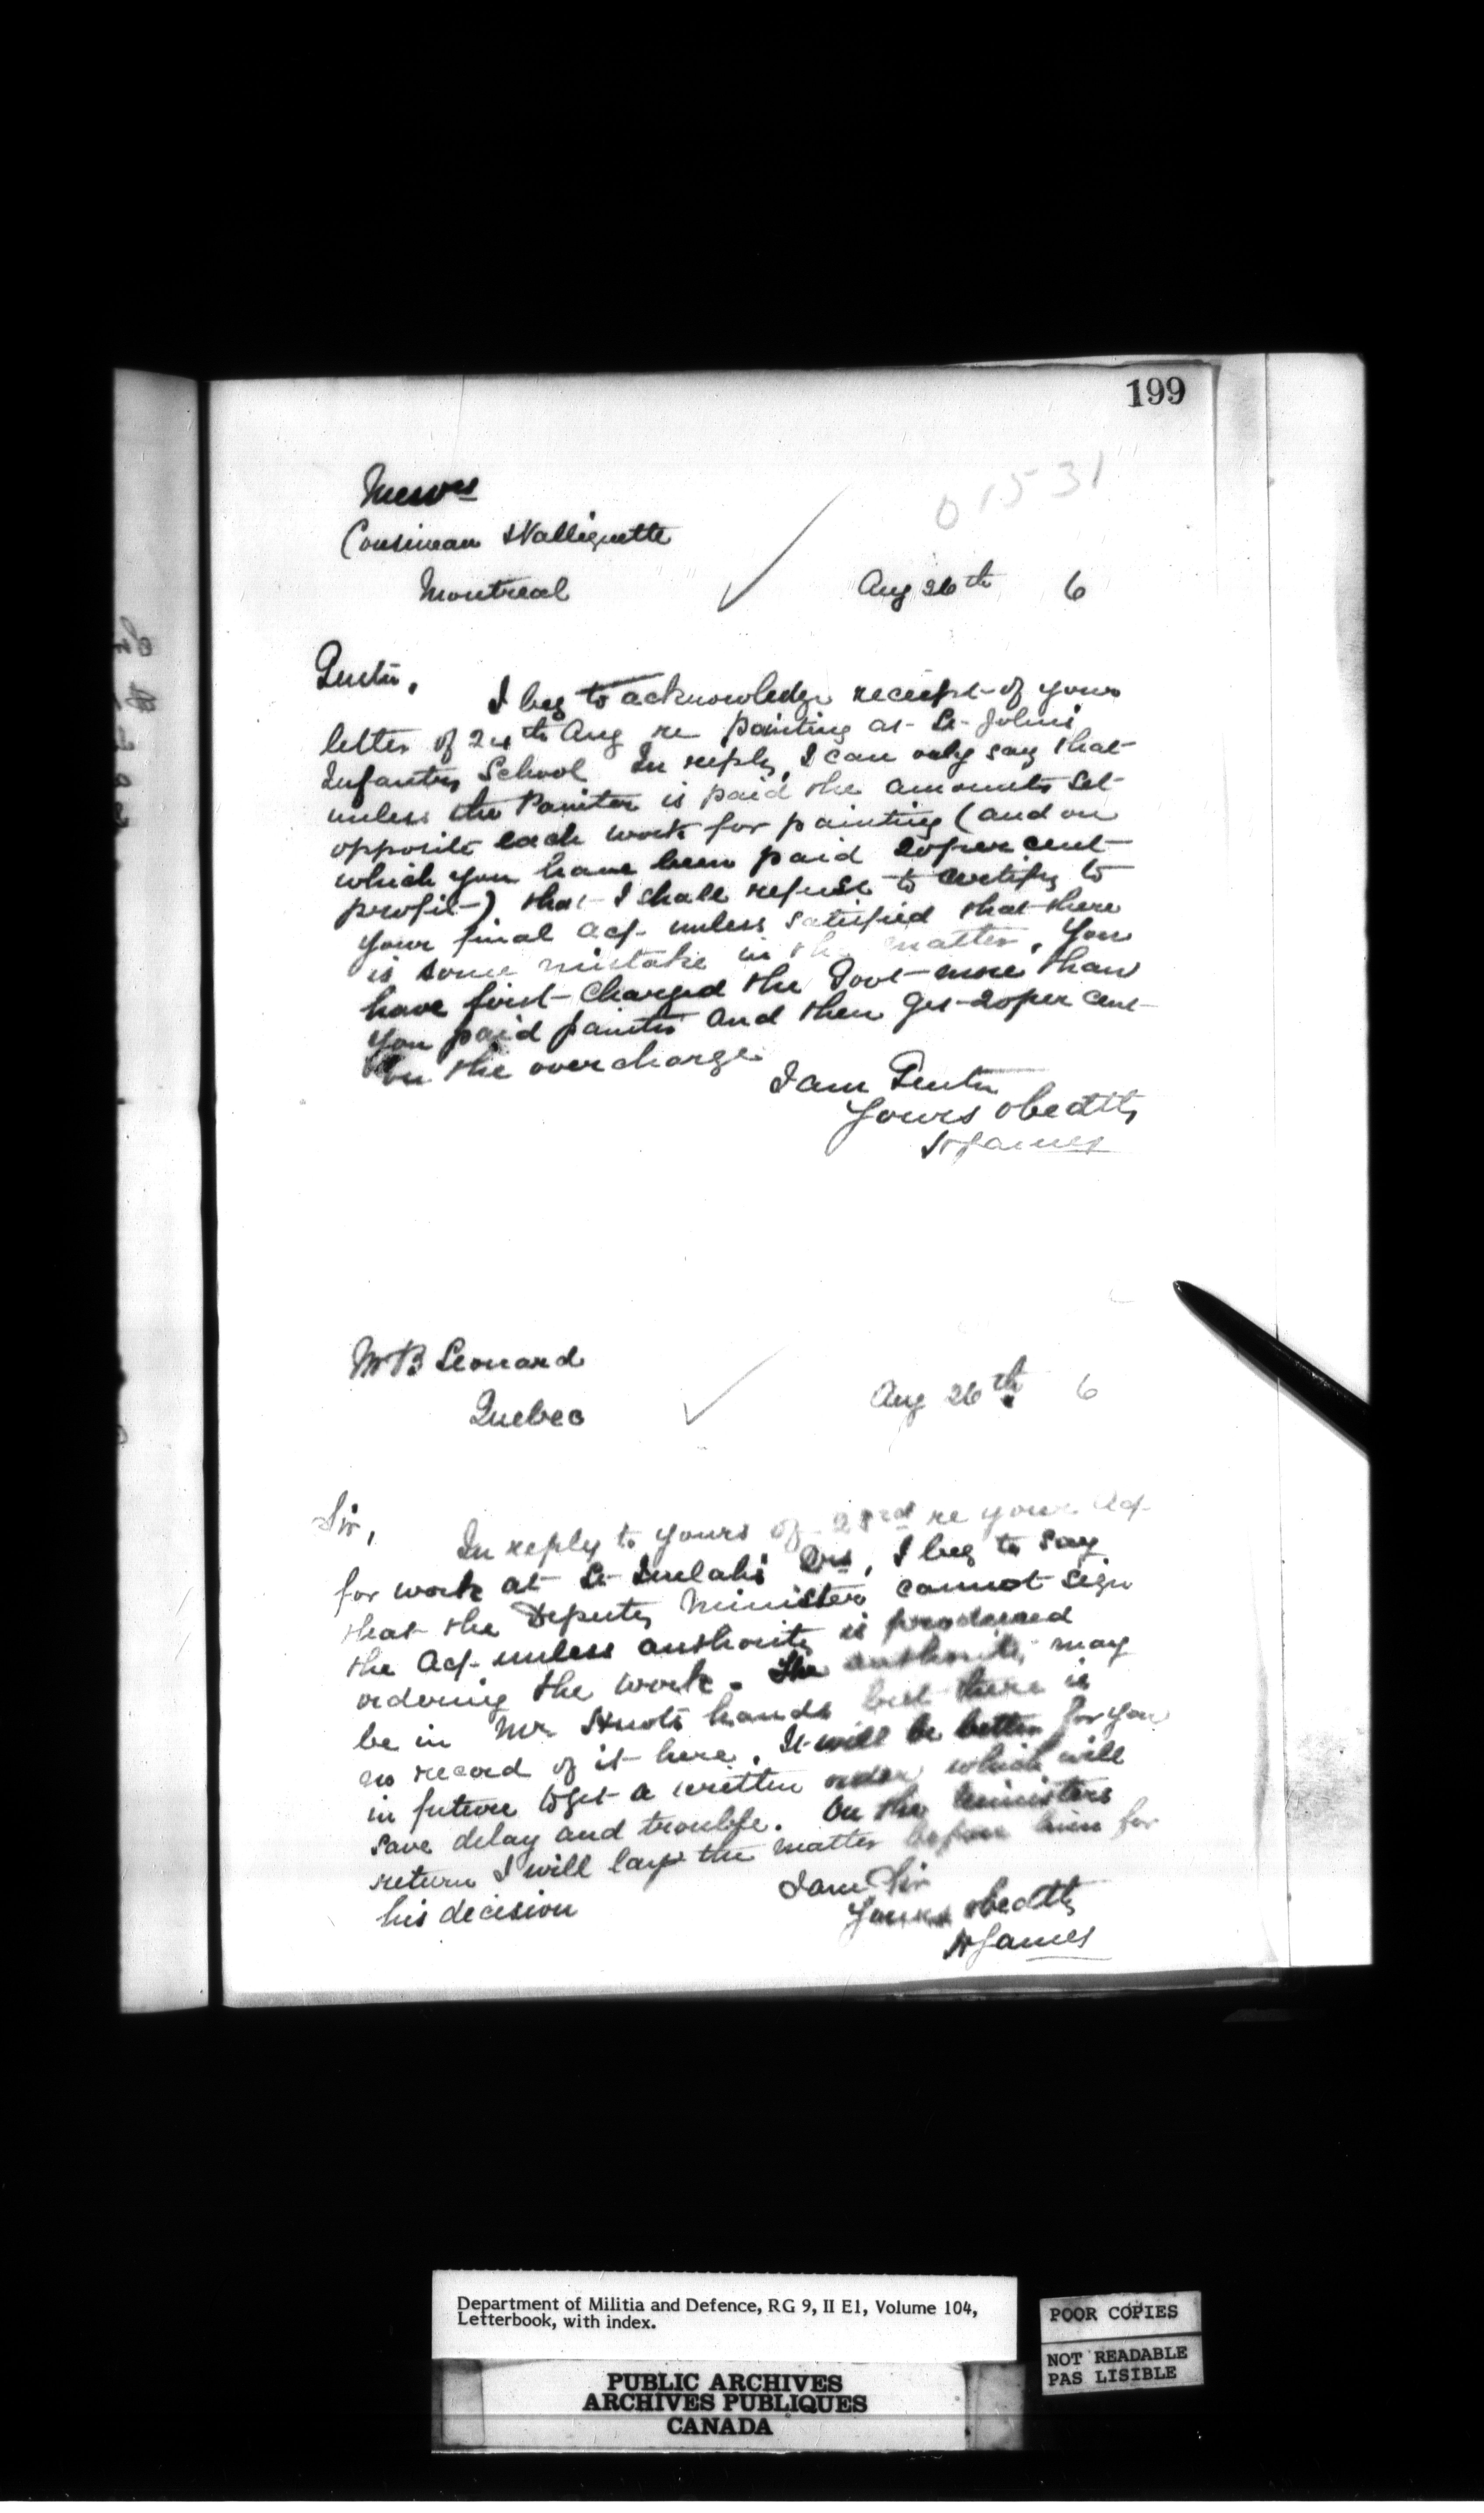 199
01531
Messrs
Cousineau & Valliquette
Montreal
Aug 26th 6
Gentn,
I beg to acknowledge receipt of your
letter of 24th Aug re painting at St Johns
Infantry School In reply, I can only say that
unless the Painter is paid the amounts set
opposite each work for painting (and on
which you have been paid 20 per cent
profit) that I shall refuse to certify to
your final acct unless satisfied that there
is some mistake in the matter, You
have first charged the Govt more than
you paid painter and then get 20 per cent
on the overcharge
I am Gentn
Yours obedtly
H James
Mr B Leonard
Quebec
Aug 26th 6
Sir,
In reply to yours of 23rd re your acct
for work at St , I beg to say
that the Deputy Minister cannot sign
the acct unless authority is produced
ordering the work. The authority may
be in Mr hands but there is
no record of it here. It will be better for you
in future to get a written order which will
save delay and trouble. On the Ministers
return I will lay the matter before him for
his decision
I am Sir
Yours obedtly
H James
Department of Militia and Defence, RG 9, II E1, Volume 104,
Letterbook, with index.
PUBLIC ARCHIVES
ARCHIVES PUBLIQUES
CANADA
POOR COPIES
NOT READABLE
PAS LISIBLE